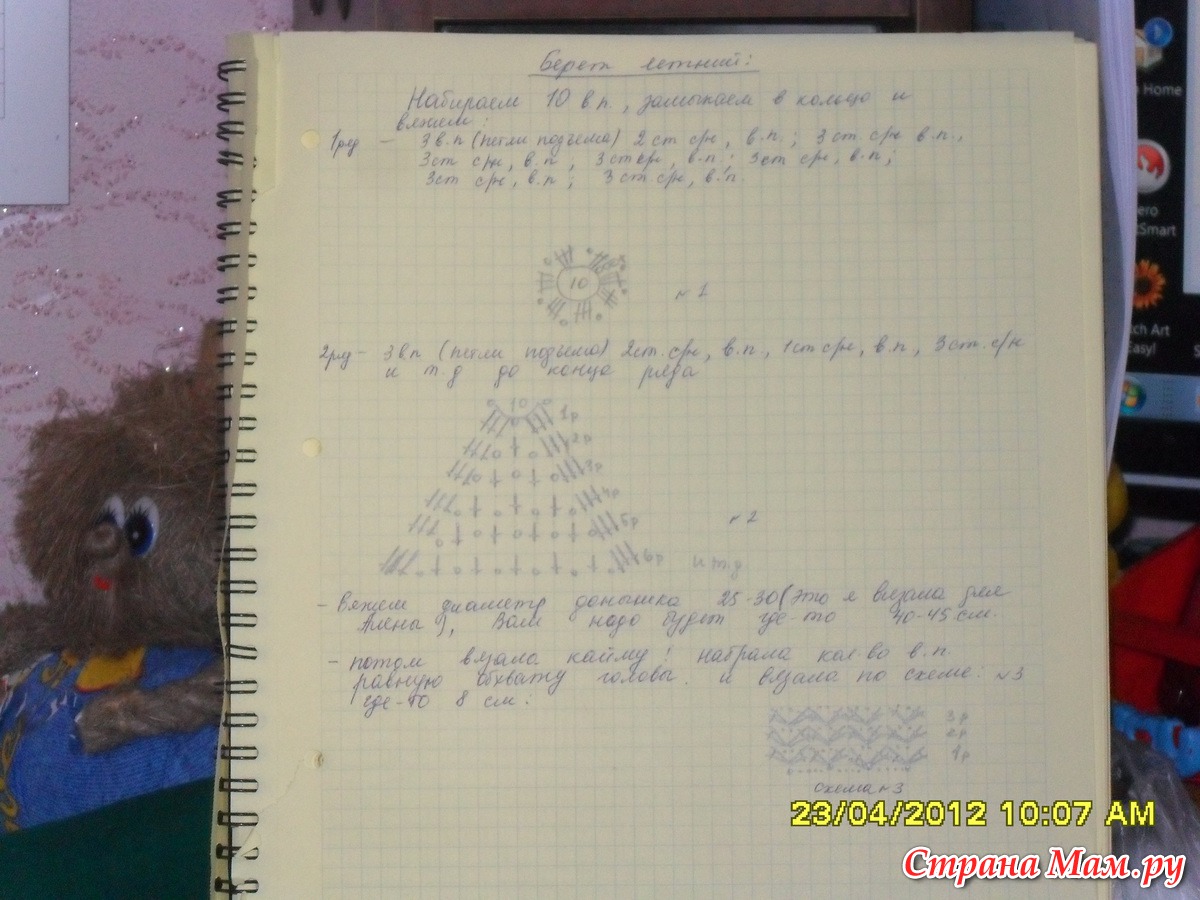 Берет летний:
Набираем 10 в.п., замыкаем в кольцо и
вяжем:
1ряд - 3 в.п (петли подъема) 2 ст с/н, в.п.; 3 ст. с/н в.п.,
3ст с/н, в.п, 3 ст с/н, в.п; 3ст с/н, в.п;
3ст с/н, в.п; 3 ст с/н, в.п.
10
№ 1
2ряд - 3 вп (петли подъема) 2ст. с/н, в.п., 1 ст с/н, в.п, 3 ст. с/н
и т.д до конца ряда
10 1р
2р
3р
4р
5р
№ 2
6р и т.д
- Вяжем диаметр донышка 25-30 (Это я вязала для
), Вам надо будет где-то 40-45 см.
- потом вязала кайму: набрала кол-во в.п.
равную обхвату головы. и вязала по схеме: №3
где-то 8 см.
3р
2р
1р
схема №3
23/04/2012 10:07 AM
Страна Мам.ру
Home
ero
Smart
ch Art
Easy!